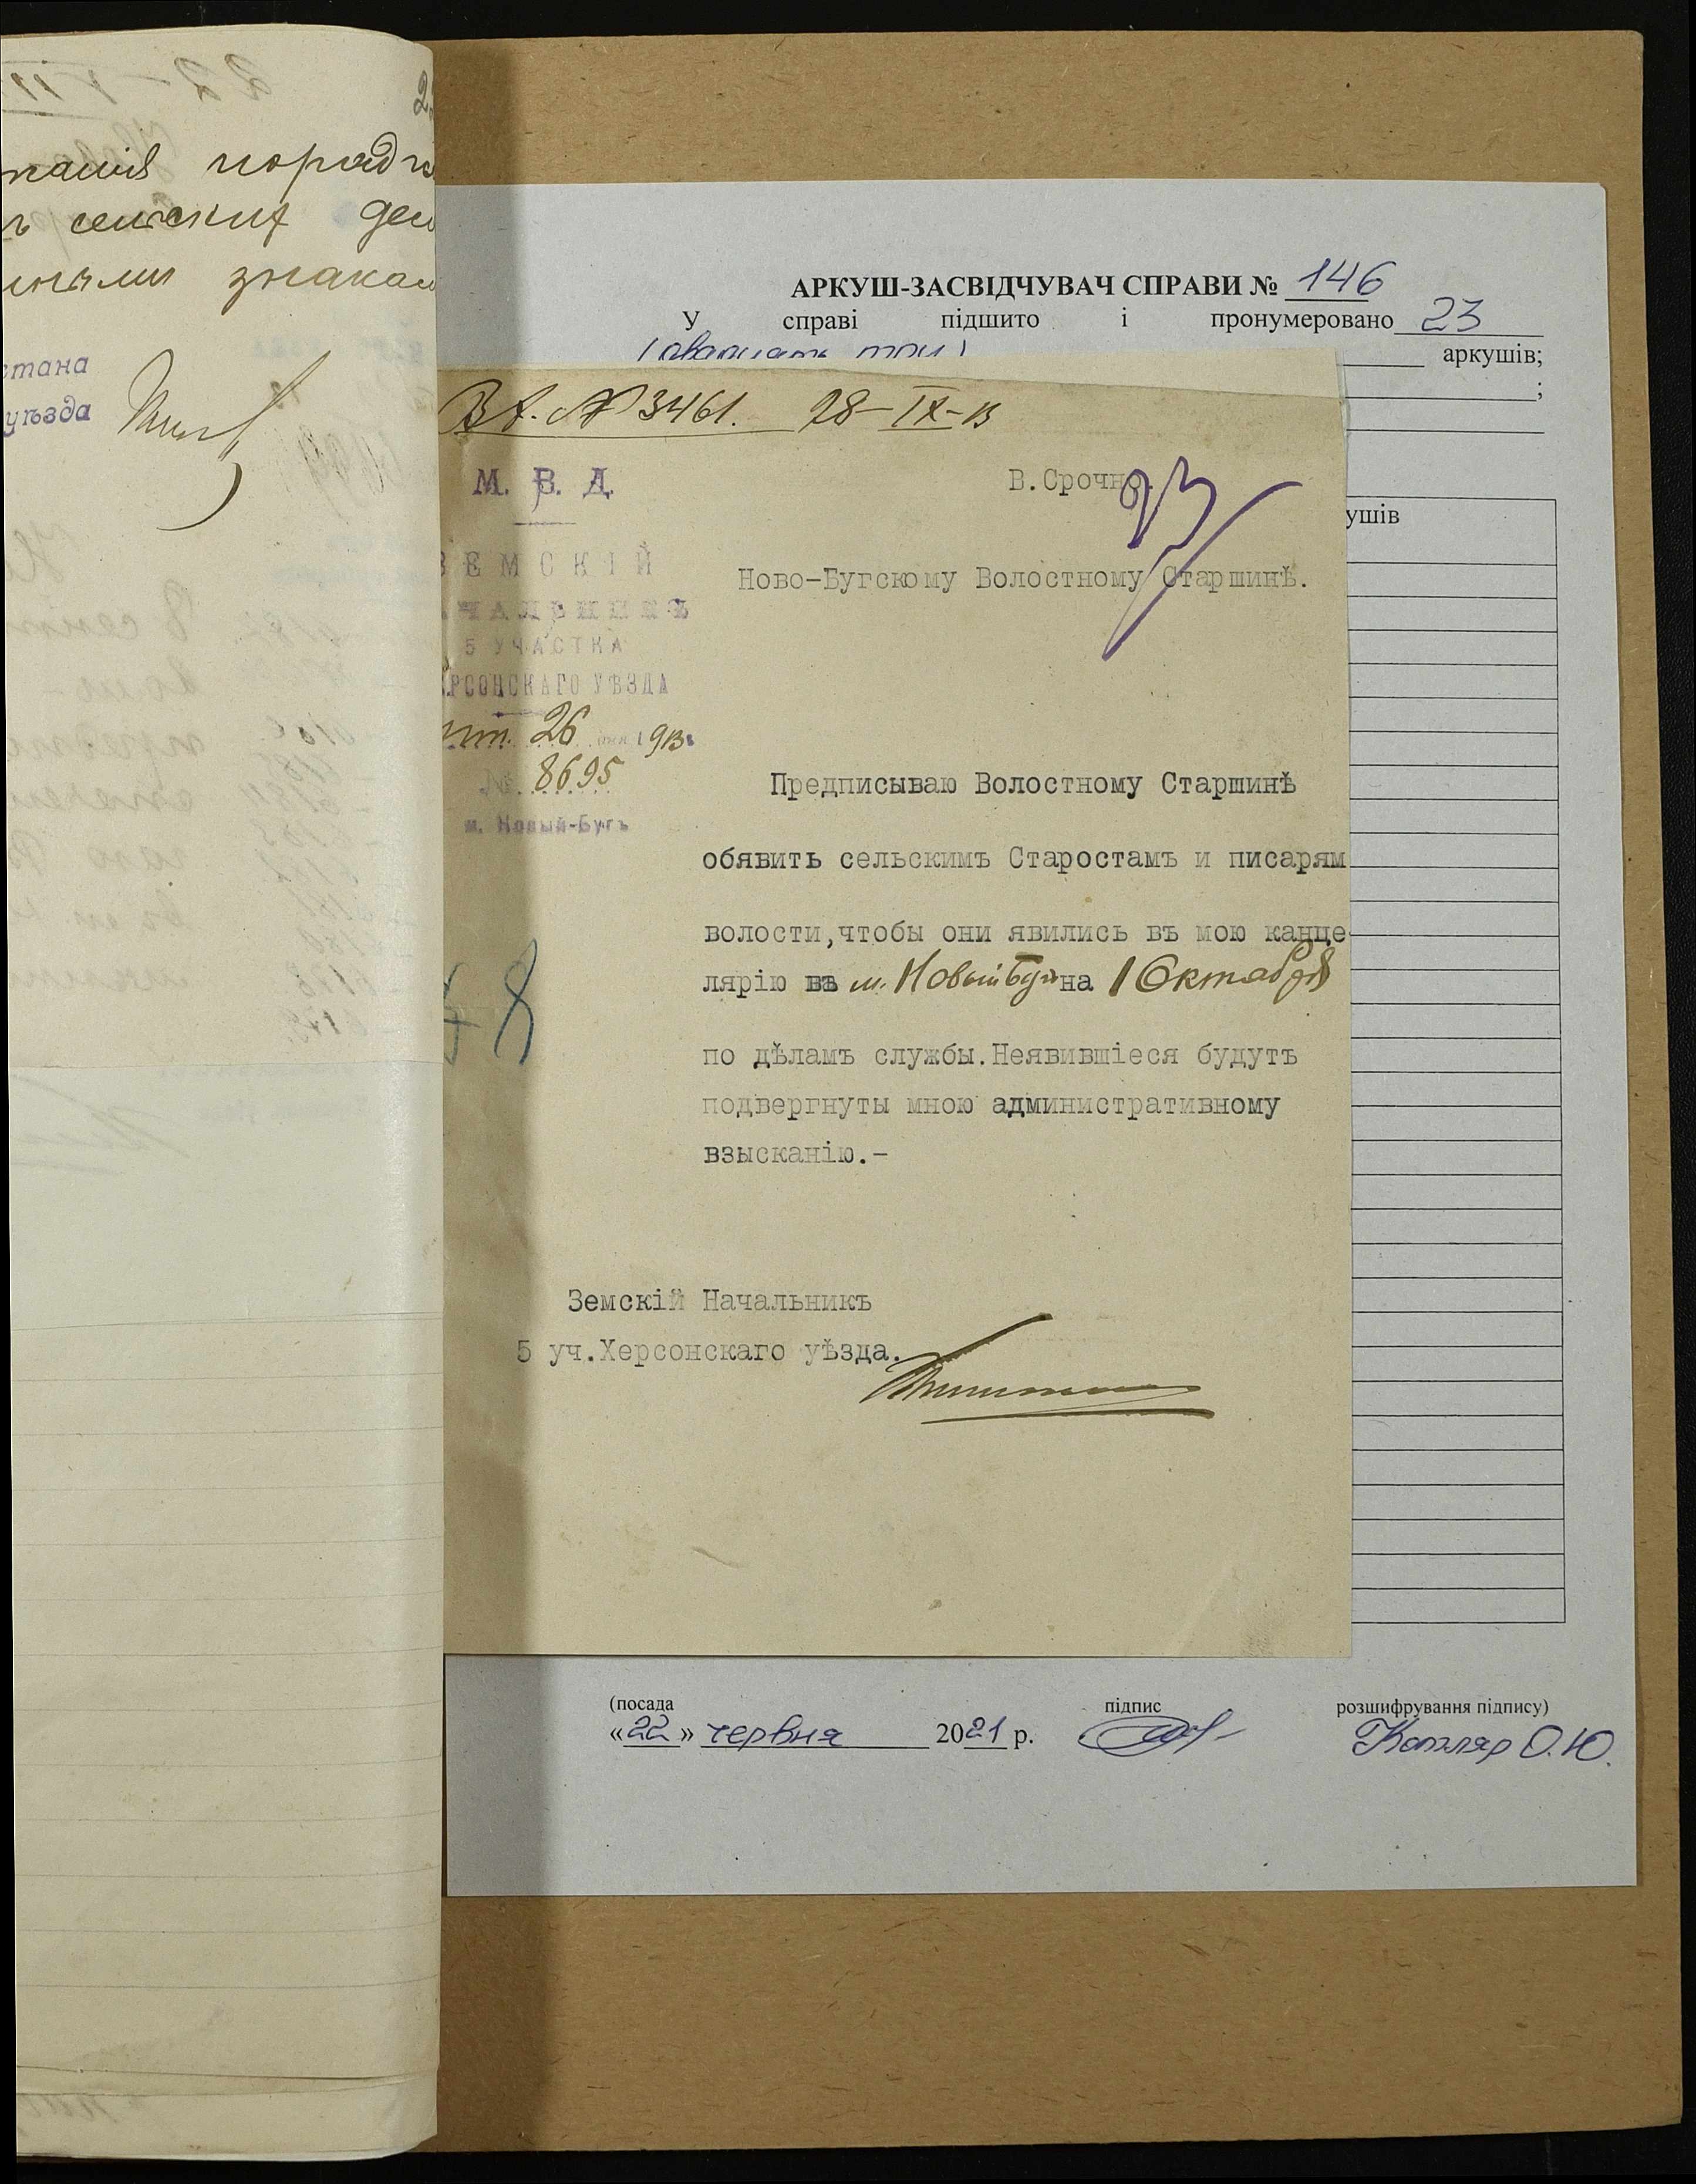 порадк
сельских
знакам
стана
уѣзда
АРКУШ-ЗАСВІДЧУВАЧ СПРАВИ № 146
У справі підшито і пронумеровано 23
(двадцять три) аркушів;
;
ушів
Вх. № 3461. 28-IX-13
М. В. Д.
ЗЕМСКІЙ
НАЧАЛЬНИКЪ
5 УЧАСТКА
ЕРСОНСКАГО УѢЗДА
26 дня 1913
№ 8695
м. Новый-Бугъ
В.Срочно.
23
Ново-Бугскому Волостному Старшинѣ.
Предписываю Волостному Старшинѣ
обявить сельскимъ Старостамъ и писарям
волости,чтобы они явились въ мою канце
лярію въ м. Новый Бугъ на 1 Октября
по дѣламъ службы.Неявившіеся будутъ
подвергнуты мною административному
взысканію.-
Земскій Начальникъ
5 уч.Херсонскаго уѣзда.
(посада підпис розшифрування підпису)
«22» червня 2021 р. Котляр О.Ю.